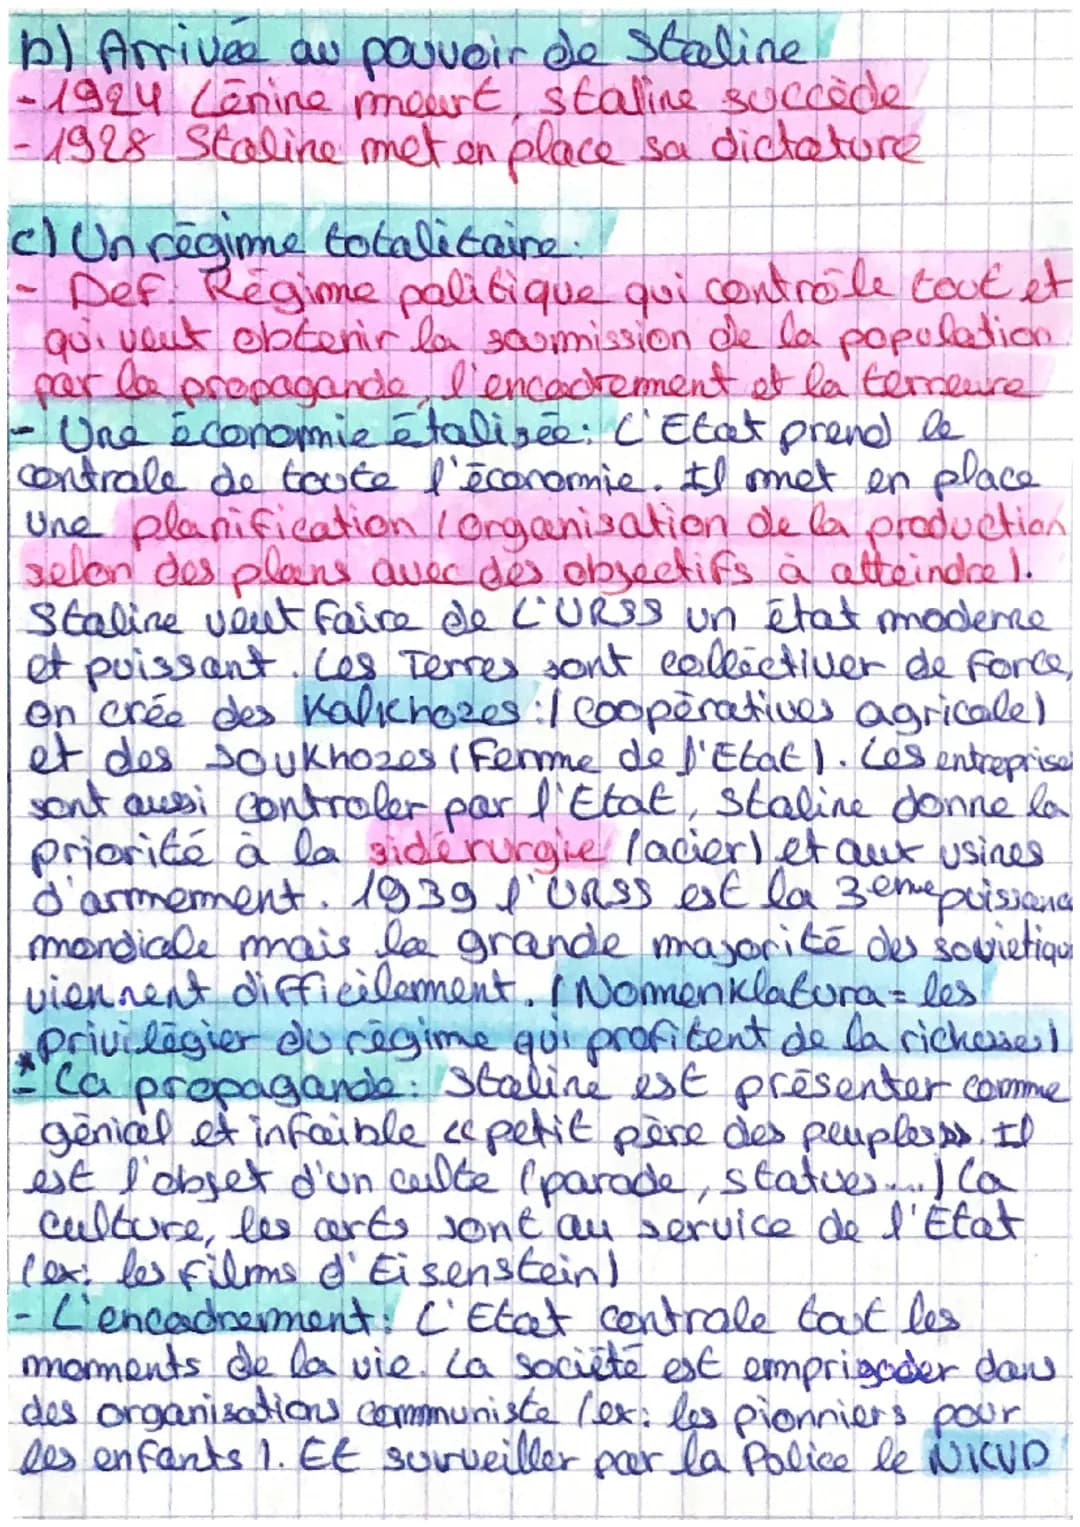 b) Arrivée au pouvoir de Staline
- 1924 Lénine meurt, staline succède
- 1928 Staline met en place sa dictature
c) Un régime totalitaire:
- Def: Régime politique qui contrôle tout et
qui veut obtenir la soumission de la population
par la propagande, l'encadrement et la terreure
- Une économie étalisée: L'Etat prend le
contrale de toute l'économie. Il met en place
une planification (organisation de la production
selon des plans avec des objectifs à atteindre).
Staline veut faire de L'URSS un état moderne
et puissant. Les Terres sont collectiver de force,
on crée des Kalkhozes: (coopératives agricole)
et des Soukhozes (Ferme de l'Etat). Les entreprise
sont aussi controler par l'Etat, Staline donne la
priorité à la sidérurgie (acier) et aux usines
d'armement. 1939 l'URSS est la 3eme puissanc
mondiale mais la grande majorité des soviétiqu
viennent difficilement. (Nomenklatura = les
privilégier du régime qui profitent de la richesse)
* - La propagande: Staline est présenter comme
génial et infaible «petit père des peuples». Il
est l'objet d'un culte (parade, statues...) La
culture, les arts sont au service de l'Etat
(ex: les films d'Eisenstein)
- L'encadrement: L'Etat contrale tout les
moments de la vie. La société est emprigoder dans
des organisations communiste (ex: les pionniers pour
les enfants). Et surveiller par la Police le NKVD